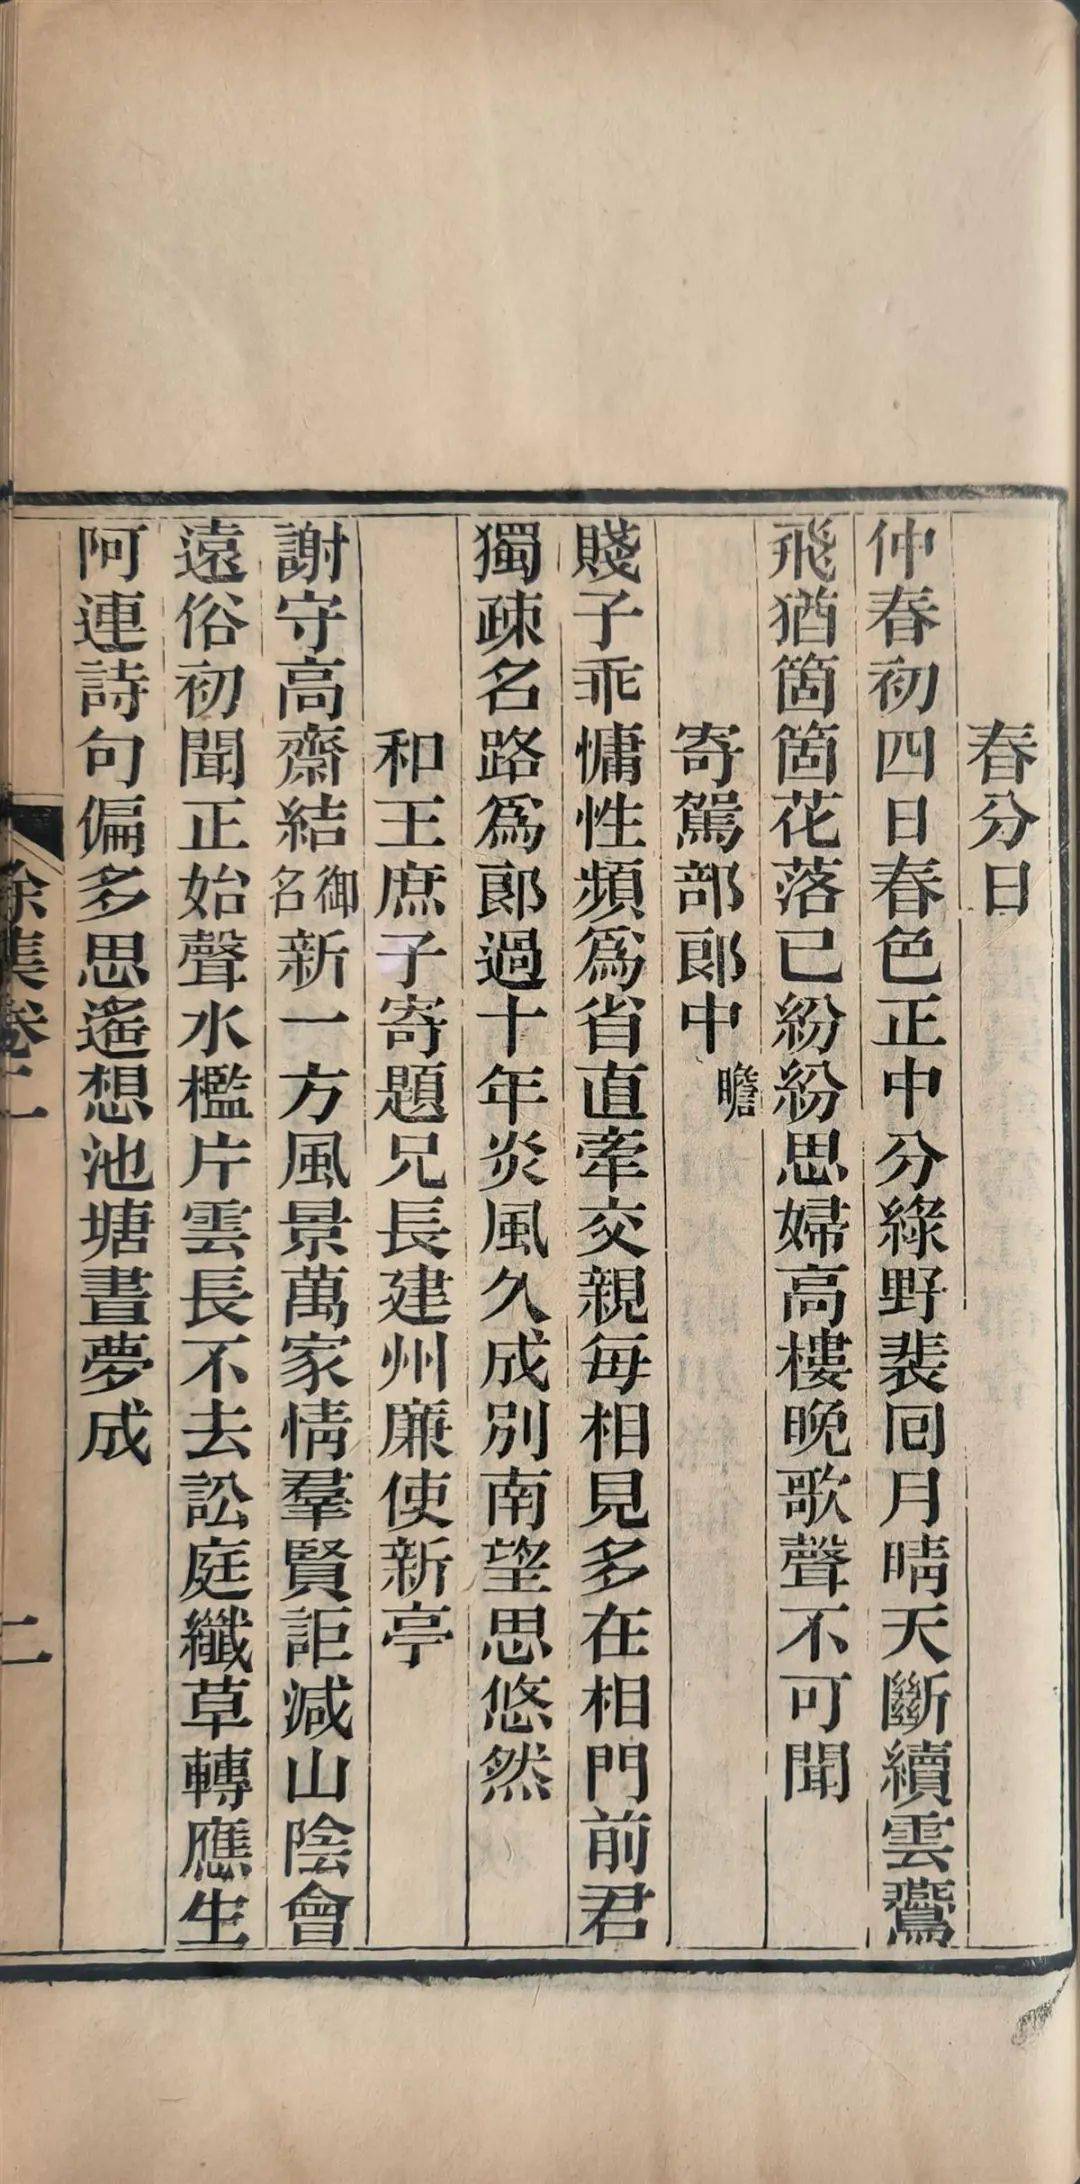 春分日
仲春初四日春色正中分綠野裴回月晴天斷續雲鷰
飛猶箇箇花落已紛紛思婦高樓晚歌聲不可聞
寄駕部郎中瞻
賤子乖慵性頻爲省直牽交親每相見多在相門前君
獨疎名路爲郎過十年炎風久成別南望思悠然
和王庶子寄題兄長建州廉使新亭
謝守高齋結御名新一方風景萬家情羣賢詎減山陰會
遠俗初聞正始聲水檻片雲長不去訟庭纖草轉應生
阿連詩句偏多思遙想池塘晝夢成
徐集卷二
二